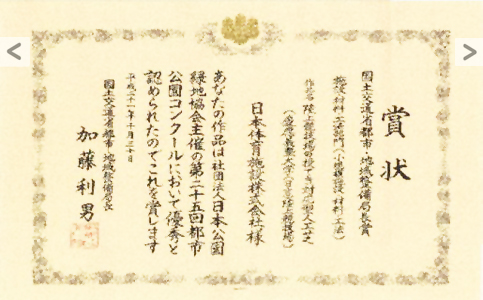 賞状
国土交通省都市・地域整備局長賞
施設・材料・工法部門(小規模施設・材料・工法)
作品名 陸上競技場の捨てる対応型人工芝
(慶應義塾大学日吉陸上競技場)
日本体育施設株式会社様
あなたの作品は社団法人日本公園
緑地協会主催の第二十五回都市
公園コンクールにおいて優秀と
認められたのでこれを賞します
平成二十一年十月三十日
国土交通省都市・地域整備局長
加藤利男